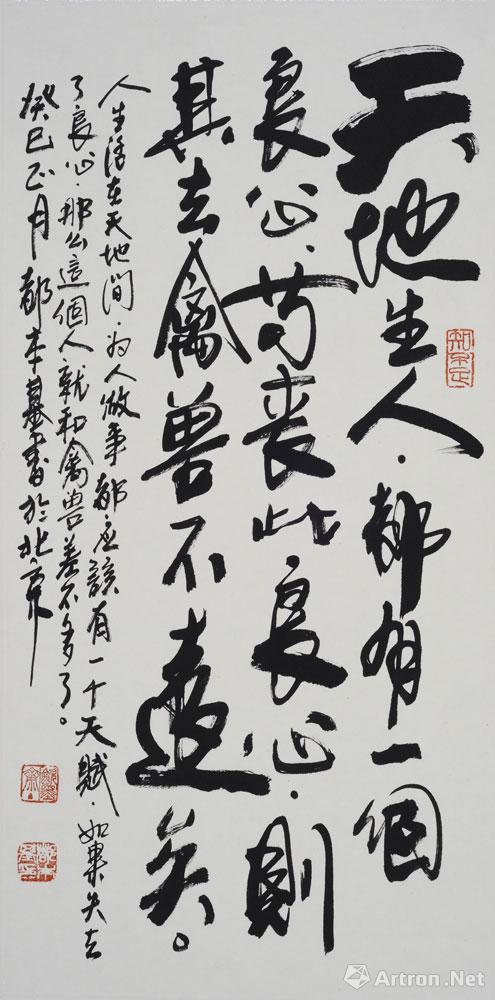 天地生人都有一個
良心苟丧此良心則
其去禽兽不遠矣。
人生活在天地间為人做事都应該有一个天赋如果失去
了良心那么這個人就和禽兽差不多了。
癸巳正月都本基書於北京
知不足
Artron.Net